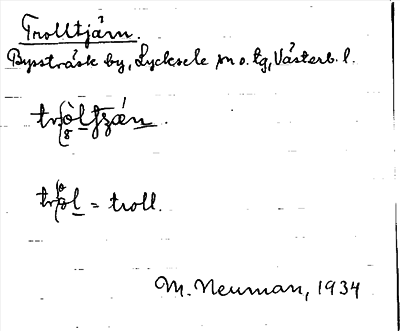 Trolltjärn.
Byssträsk by, Lycksele sn o. tg, Västerb. l.
= troll.
M. Neuman, 1934